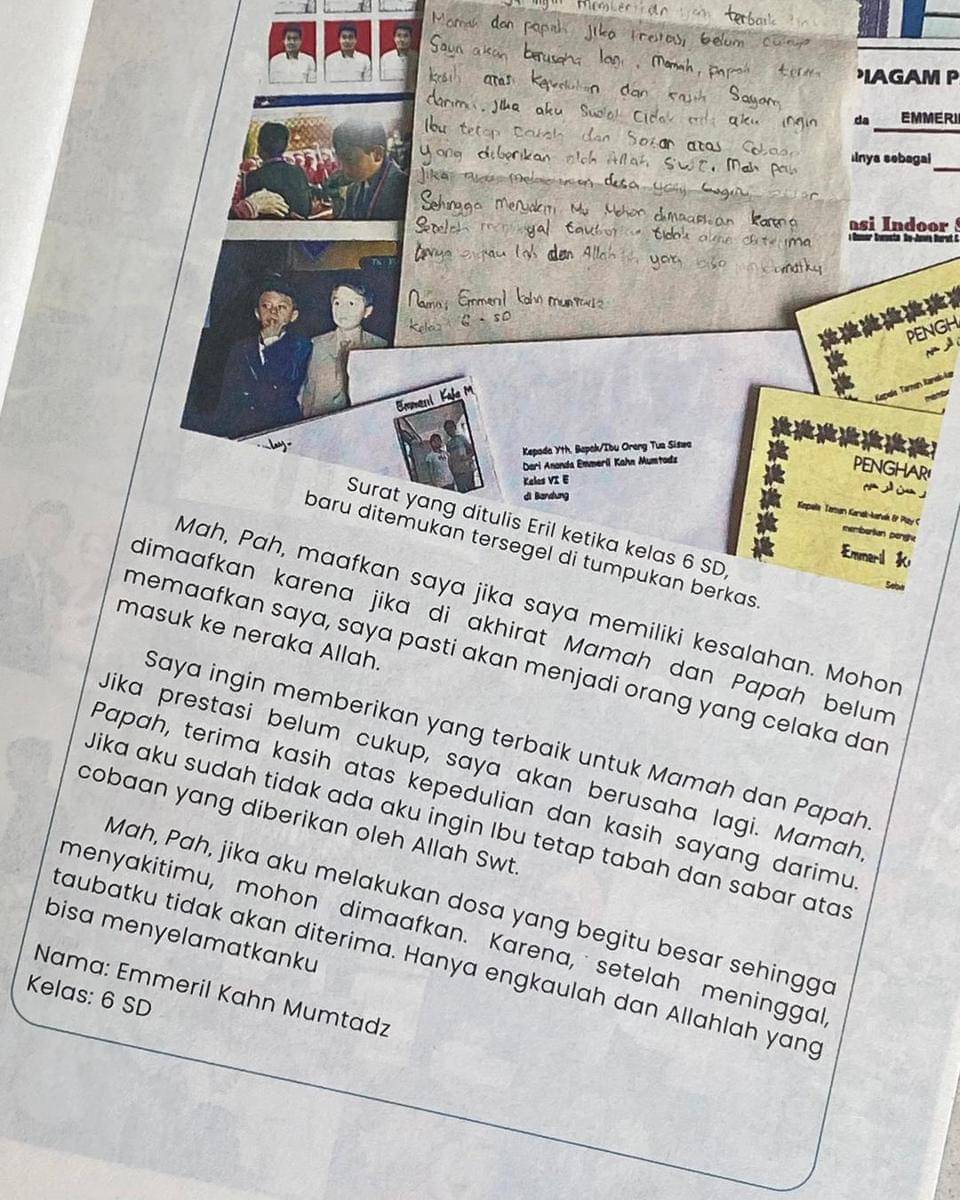 terbaik
Mamah dan papah, jika prestasi belum cukup
Saya akan berusaha lagi. Mamah, papah terima
kasih atas kepedulian dan kasih Sayang
darimu. Jika aku Sudah tidak ada aku ingin
Ibu tetap tabah dan Sabar atas Cobaan
yang diberikan oleh Allah SWT. Mah pah
Jika aku melakukan dosa yang begitu besar
Sehingga menyakiti Mu Mohon dimaafkan karena
Setelah meninggal taubatku tidak akan diterima
hanya engkau lah dan Allah lah yang bisa
Nama: Emmeril kahn mumtadz
kelas: 6 - SD
PIAGAM P
da EMMERI
lnya sebagai
asi Indoor S
PENGHA
Kepala Taman Kanak-ka
Emmeril Kahn M
Kepada Yth. Bapak/Ibu Orang Tua Siswa
Dari Ananda Emmeril Kahn Mumtadz
Kelas VI E
di Bandung
PENGHAR
Kepala Taman Kanak-kanak & Play C
memberikan pengha
Emmeril K
Seba
Surat yang ditulis Eril ketika kelas 6 SD,
baru ditemukan tersegel di tumpukan berkas.
Mah, Pah, maafkan saya jika saya memiliki kesalahan. Mohon
dimaafkan karena jika di akhirat Mamah dan Papah belum
memaafkan saya, saya pasti akan menjadi orang yang celaka dan
masuk ke neraka Allah.
Saya ingin memberikan yang terbaik untuk Mamah dan Papah.
Jika prestasi belum cukup, saya akan berusaha lagi. Mamah,
Papah, terima kasih atas kepedulian dan kasih sayang darimu.
Jika aku sudah tidak ada aku ingin Ibu tetap tabah dan sabar atas
cobaan yang diberikan oleh Allah Swt.
Mah, Pah, jika aku melakukan dosa yang begitu besar sehingga
menyakitimu, mohon dimaafkan. Karena, setelah meninggal,
taubatku tidak akan diterima. Hanya engkaulah dan Allahlah yang
bisa menyelamatkanku
Nama: Emmeril Kahn Mumtadz
Kelas: 6 SD